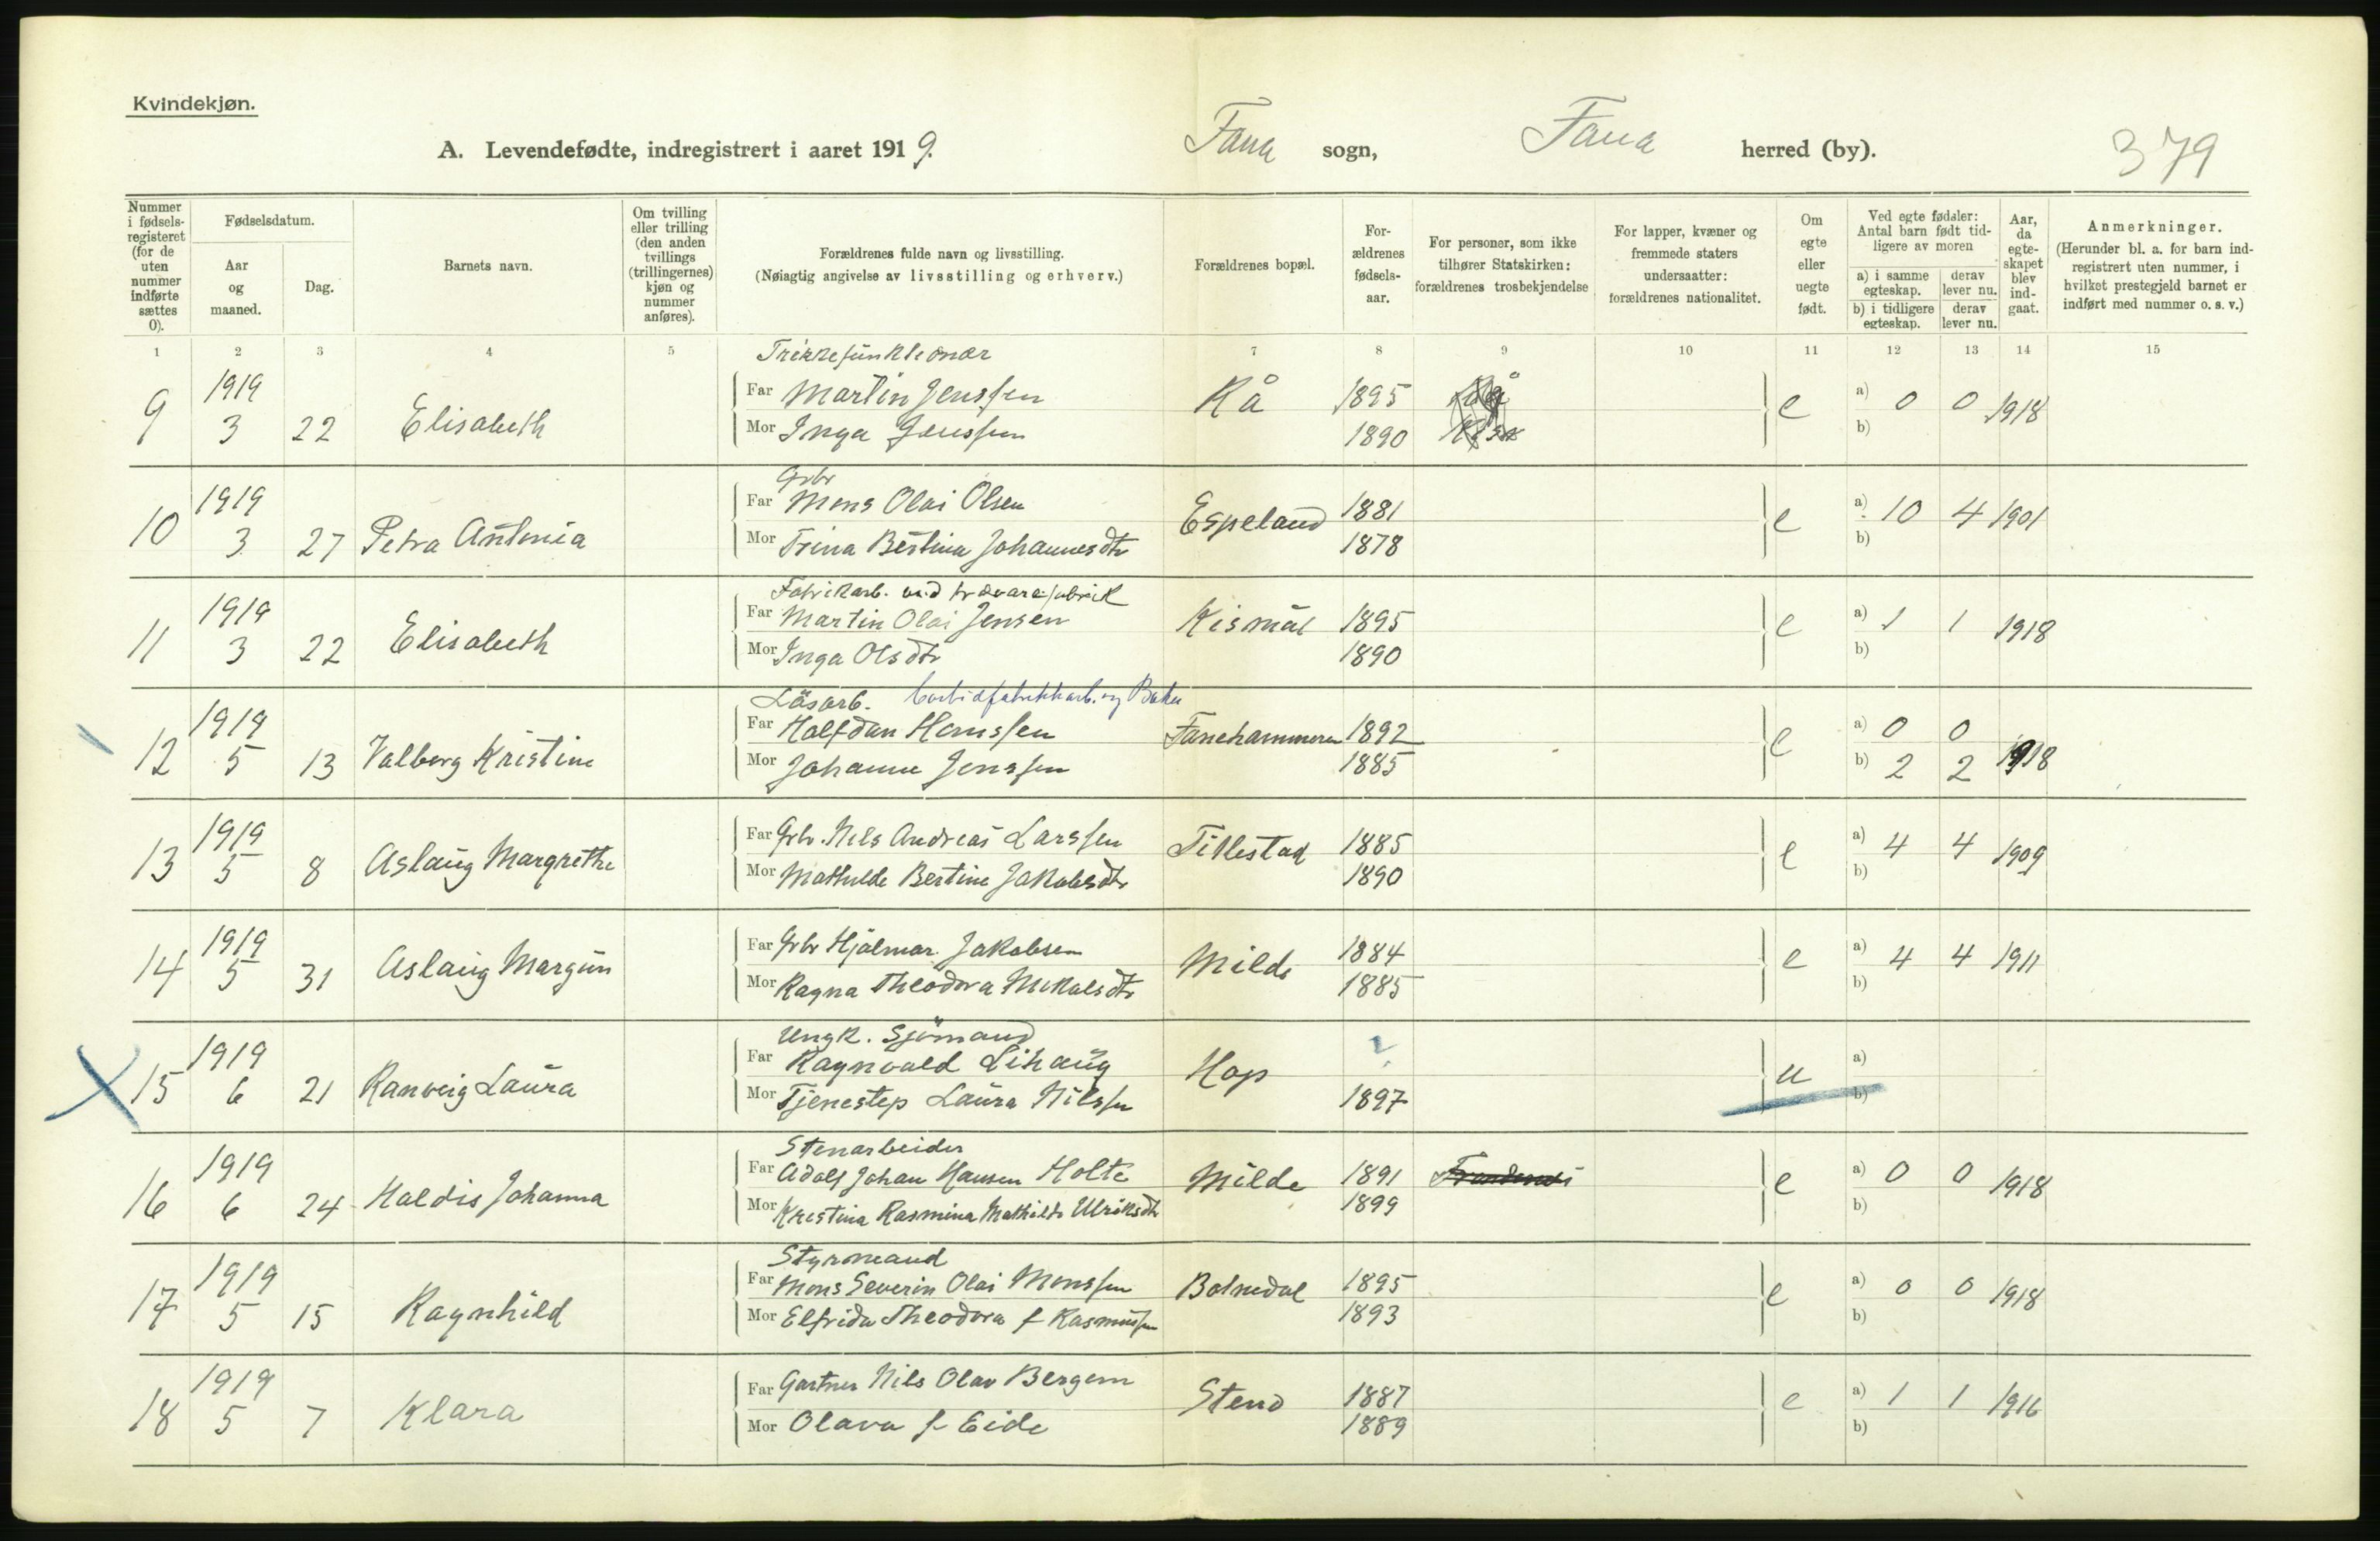 Kvindekjøn.
A. Levendefødte, indregistrert i aaret 1919. Fana sogn, Fana herred (by). 379
Nummer i fødselsregisteret (for de uten nummer indførte sættes 0).
Fødselsdatum.
Aar og maaned.
Dag.
Barnets navn.
Om tvilling eller trilling (den anden tvillings (trillingernes) kjøn og nummer anføres).
Forældrenes fulde navn og livsstilling.
(Nøiagtig angivelse av livsstilling og erhverv.)
Forældrenes bopæl.
Forældrenes fødselsaar.
For personer, som ikke tilhører Statskirken: forældrenes trosbekjendelse
For lapper, kvæner og fremmede staters undersaatter: forældrenes nationalitet.
Om egte eller uegte født.
Ved egte fødsler: Antal barn født tidligere av moren
a) i samme egteskap. derav lever nu.
b) i tidligere egteskap. derav lever nu.
Aar, da egteskapet blev indgaat.
Anmerkninger.
(Herunder bl. a. for barn indregistrert uten nummer, i hvilket prestegjeld barnet er indført med nummer o. s. v.)
1 2 3 4 5 7 8 9 10 11 12 13 14 15
Trikkefunktionær
9 1919 3 22 Elisabeth Far Martin Jenssen Rå 1895 e a) 0 0 1918
Mor Inga Jenssen 1890 b)
Grbr
10 1919 3 27 Petra Antonia Far Mons Olai Olsen Espeland 1881 e a) 10 4 1901
Mor Trina Bertina Johannesdtr 1878 b)
Fabrikarb. ved trævarefabrik
11 1919 3 22 Elisabeth Far Martin Olai Jensen Kismål 1895 e a) 1 1 1918
Mor Inga Olsdtr 1890 b)
Läsarb.
12 1919 5 13 Valberg Kristine Far Halfdan Hanssen Fanehammeren 1892 e a) 0 0
Mor Johanne Jenssen 1885 b) 2 2 1918
13 1919 5 8 Aslaug Margrethe Far Grbr. Nils Andreas Larssen Tillestad 1885 e a) 4 4 1909
Mor Mathilde Bertine Jakobsdtr 1890 b)
14 1919 5 31 Aslaug Margun Far Grbr Hjalmar Jakobsen Milde 1884 e a) 4 4 1911
Mor Ragna Theodora Mikalsdtr 1885 b)
Ungk. Sjömand
15 1919 6 21 Ranveig Laura Far Ragnvald Lihaug Hop ? u a)
Mor Tjenestep Laura Nilssen 1897 b)
Stenarbeider
16 1919 6 24 Haldis Johanna Far Adolf Johan Hansen Holte Milde 1891 e a) 0 0 1918
Mor Kristina Rasmina Mathilde Ulriksdtr 1899 b)
Styrmand
17 1919 5 15 Ragnhild Far Mons Severin Olai Monssen Botnedal 1895 e a) 0 0 1918
Mor Elfrida Theodora f Rasmussen 1893 b)
18 1919 5 7 Klara Far Gartner Nils Olav Bergem Stend 1887 e a) 1 1 1916
Mor Olava f Eide 1889 b)